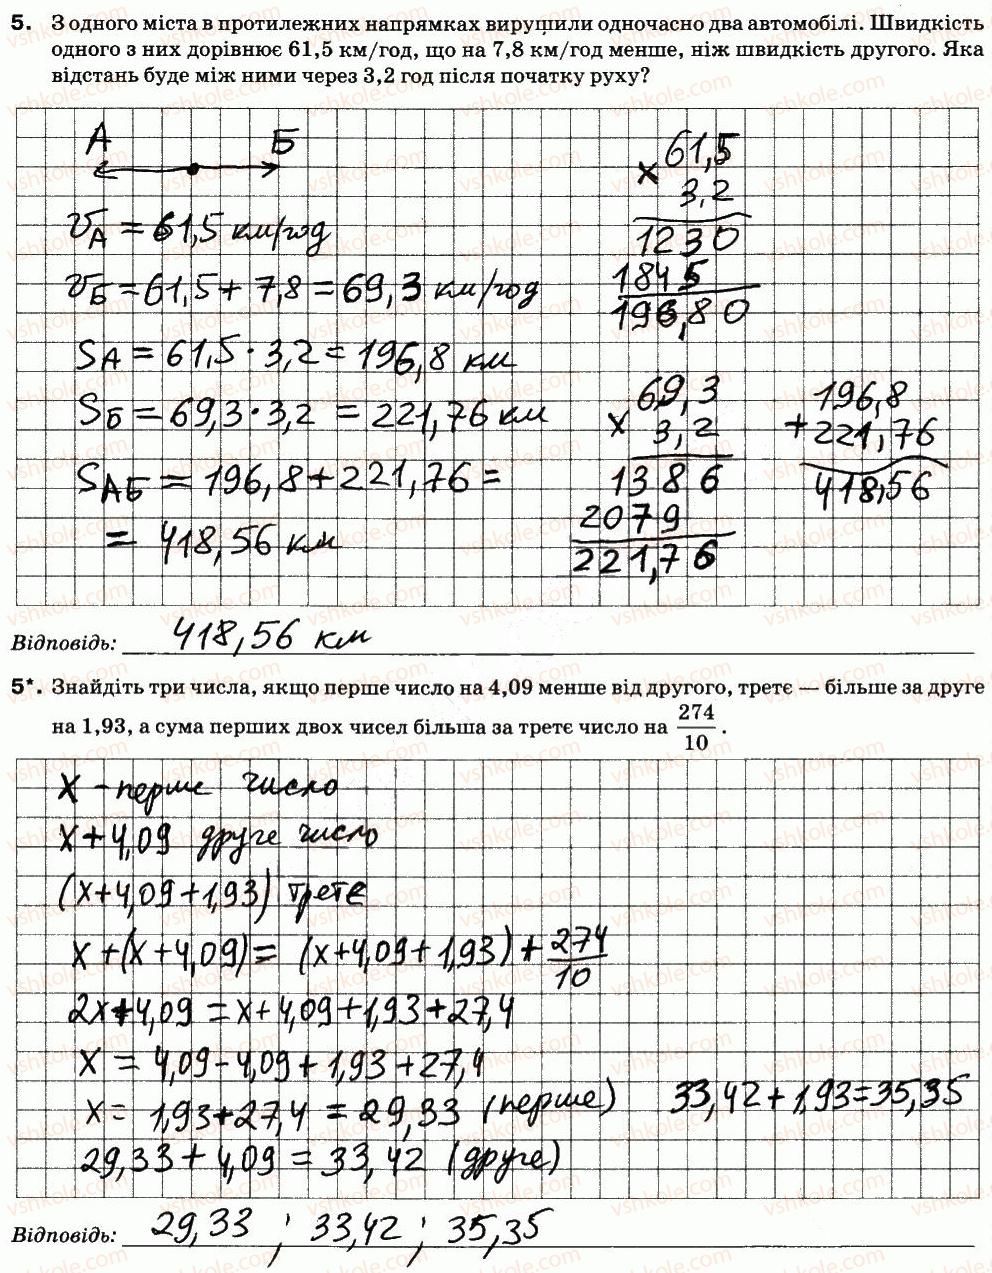 5. З одного міста в протилежних напрямках вирушили одночасно два автомобілі. Швидкість
одного з них дорівнює 61,5 км/год, що на 7,8 км/год менше, ніж швидкість другого. Яка
відстань буде між ними через 3,2 год після початку руху?
А Б
v_А = 61,5 км/год
v_Б = 61,5 + 7,8 = 69,3 км/год
S_А = 61,5 · 3,2 = 196,8 км
S_Б = 69,3 · 3,2 = 221,76 км
S_АБ = 196,8 + 221,76 =
= 418,56 км
61,5
× 3,2
1230
1845
196,80
69,3
× 3,2
1386
2079
221,76
196,8
+ 221,76
418,56
Відповідь: 418,56 км
5*. Знайдіть три числа, якщо перше число на 4,09 менше від другого, третє — більше за друге
на 1,93, а сума перших двох чисел більша за третє число на 274/10.
х – перше число
х + 4,09 друге число
(х + 4,09 + 1,93) третє
х + (х + 4,09) = (х + 4,09 + 1,93) + 274/10
2х + 4,09 = х + 4,09 + 1,93 + 27,4
х = 4,09 - 4,09 + 1,93 + 27,4
х = 1,93 + 27,4 = 29,33 (перше)
33,42 + 1,93 = 35,35
29,33 + 4,09 = 33,42 (друге)
Відповідь: 29,33 ; 33,42 ; 35,35
vshkole.com